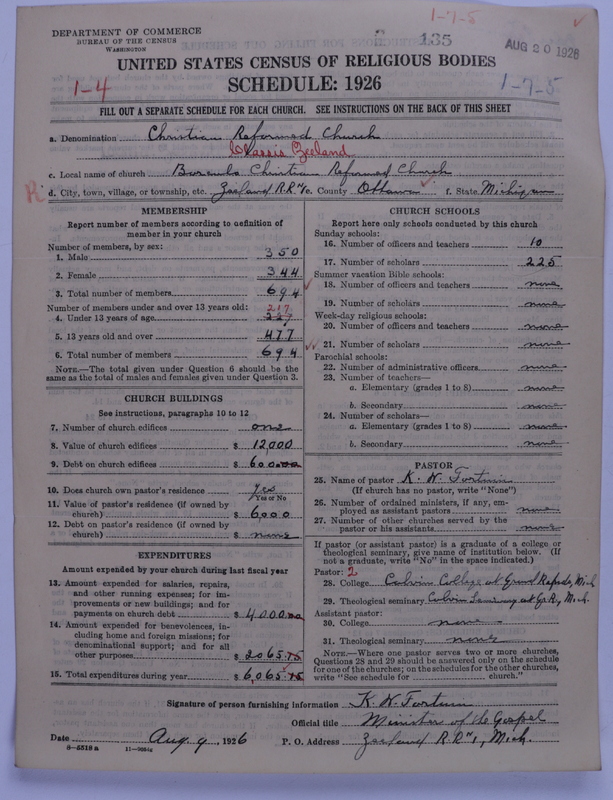 1-7-5
DEPARTMENT OF COMMERCE
BUREAU OF THE CENSUS
WASHINGTON
135
AUG 20 1926
UNITED STATES CENSUS OF RELIGIOUS BODIES
1-4
SCHEDULE: 1926
1-7-5
FILL OUT A SEPARATE SCHEDULE FOR EACH CHURCH. SEE INSTRUCTIONS ON THE BACK OF THIS SHEET
a. Denomination Christian Reformed Church
Classis Zeeland
c. Local name of church Borculo Christian Reformed Church
R d. City, town, village, or township, etc. Zeeland R.R. 1 e. County Ottawa f. State Michigan
MEMBERSHIP
Report number of members according to definition of member in your church
Number of members, by sex:
1. Male 350
2. Female 344
3. Total number of members 694
Number of members under and over 13 years old: 217
4. Under 13 years of age 227
5. 13 years old and over 477
6. Total number of members 694
NOTE.—The total given under Question 6 should be
same as the total of males and females given under Question 3.
CHURCH BUILDINGS
See instructions, paragraphs 10 to 12
7. Number of church edifices one
8. Value of church edifices $ 12,000
9. Debt on church edifices $ 600.00
10. Does church own pastor's residence Yes
Yes or No
11. Value of pastor's residence (if owned by
church) $ 6,000
12. Debt on pastor's residence (if owned by
church) $ none
EXPENDITURES
Amount expended by your church during last fiscal year
13. Amount expended for salaries, repairs,
and other running expenses; for im-
provements or new buildings; and for
payments on church debt $ 4,000.00
14. Amount expended for benevolences, in-
cluding home and foreign missions; for
denominational support; and for all
other purposes $ 2065.75
15. Total expenditures during year $ 6,065.75
CHURCH SCHOOLS
Report here only schools conducted by this church
Sunday schools:
16. Number of officers and teachers 10
17. Number of scholars 225
Summer vacation Bible schools:
18. Number of officers and teachers none
19. Number of scholars none
Week-day religious schools:
20. Number of officers and teachers none
21. Number of scholars none
Parochial schools:
22. Number of administrative officers none
23. Number of teachers—
a. Elementary (grades 1 to 8) none
b. Secondary none
24. Number of scholars—
a. Elementary (grades 1 to 8) none
b. Secondary none
PASTOR
25. Name of pastor K. W. Fortuin
(If church has no pastor, write "None")
26. Number of ordained ministers, if any, em-
ployed as assistant pastors none
27. Number of other churches served by the
pastor or his assistants none
If pastor (or assistant pastor) is a graduate of a college or
theological seminary, give name of institution below. (If
not a graduate, write "No" in the space indicated.)
Pastor: 2
28. College Calvin College at Grand Rapids, Mich
29. Theological seminary Calvin Seminary at G.R., Mich.
Assistant pastor:
30. College none
31. Theological seminary none
NOTE.—Where one pastor serves two or more churches,
Questions 28 and 29 should be answered only on the schedule
for one of the churches; on the schedules for the other churches,
write "See schedule for church."
Signature of person furnishing information K. W. Fortuin
Official title Minister of the Gospel
Date Aug 9, 1926 P. O. Address Zeeland R.R. 1, Mich.